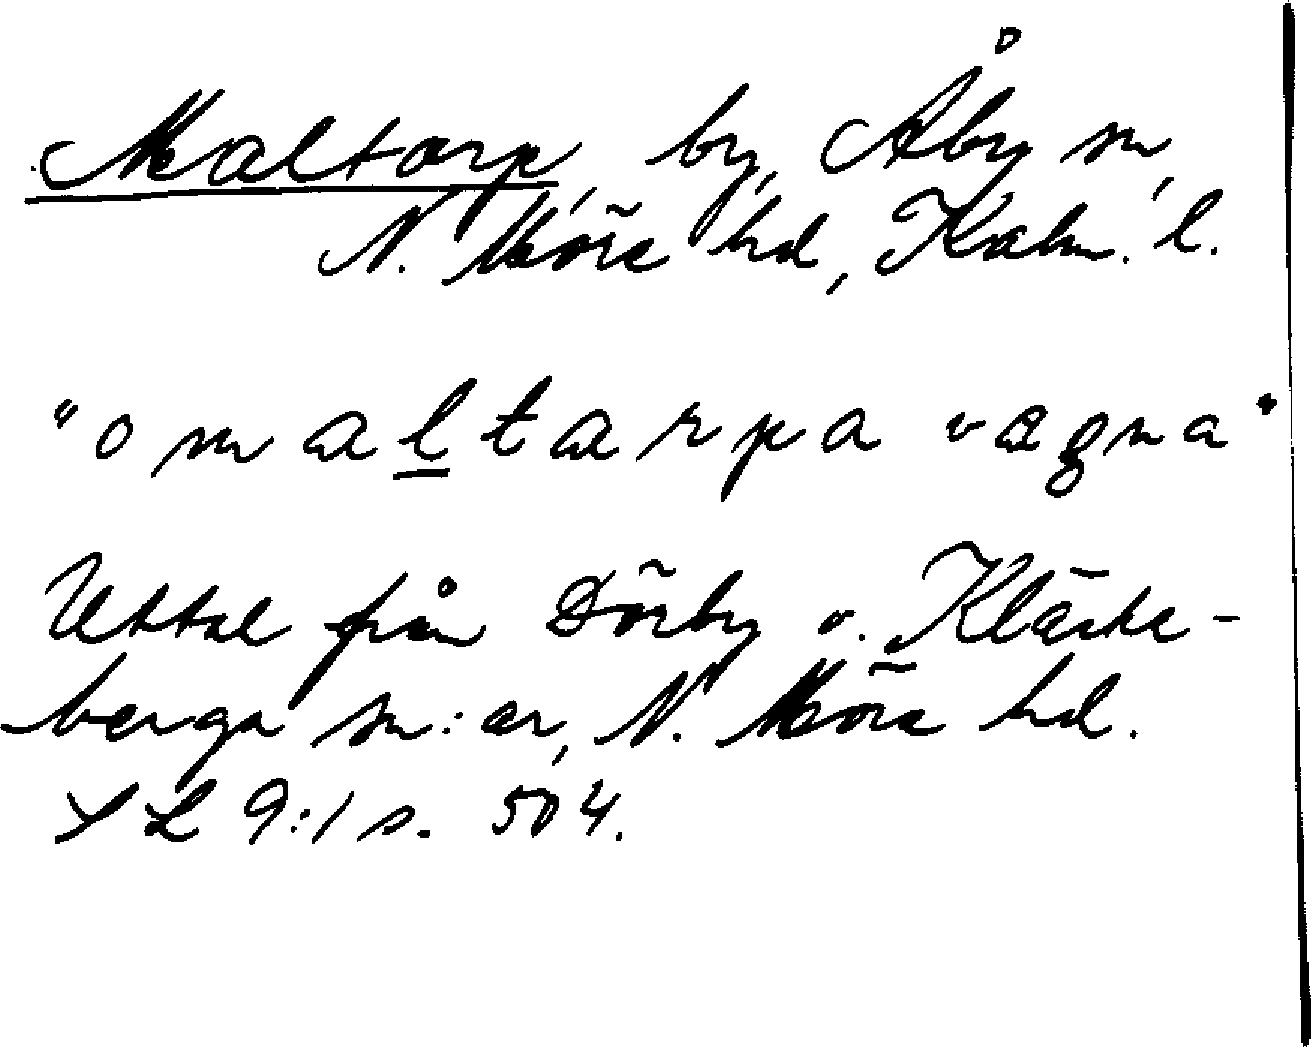 Maltorp, by, Åby sn,
N. Möre hd, Kalm. l.
"o m a l t a r p a v a g n a"
Uttal från Dörby o. Kläcke-
berga sn:ar, N. Möre hd.
SL 9:1 s. 504.